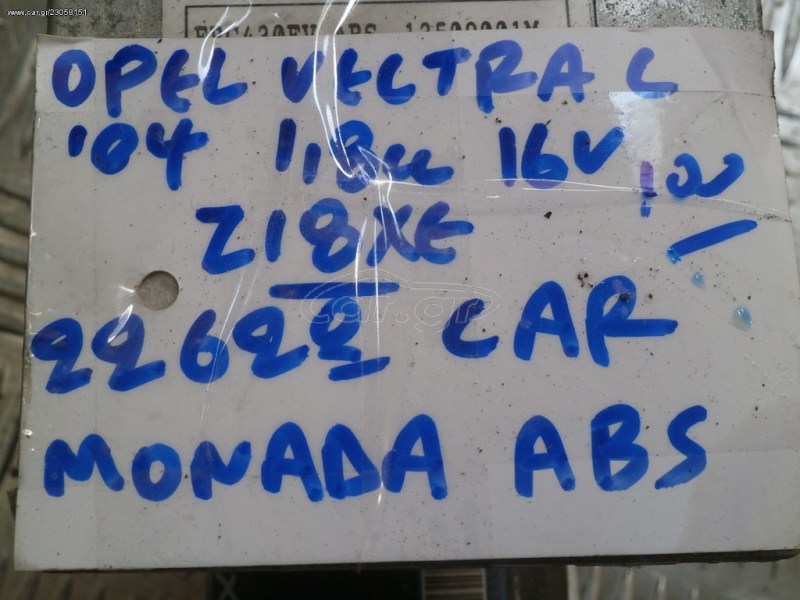 www.car.gr/23058151
OPEL VECTRA C
'04 1,8cc 16V
Z18XE
22622 CAR
car.gr
ΜΟΝΑΔΑ ABS